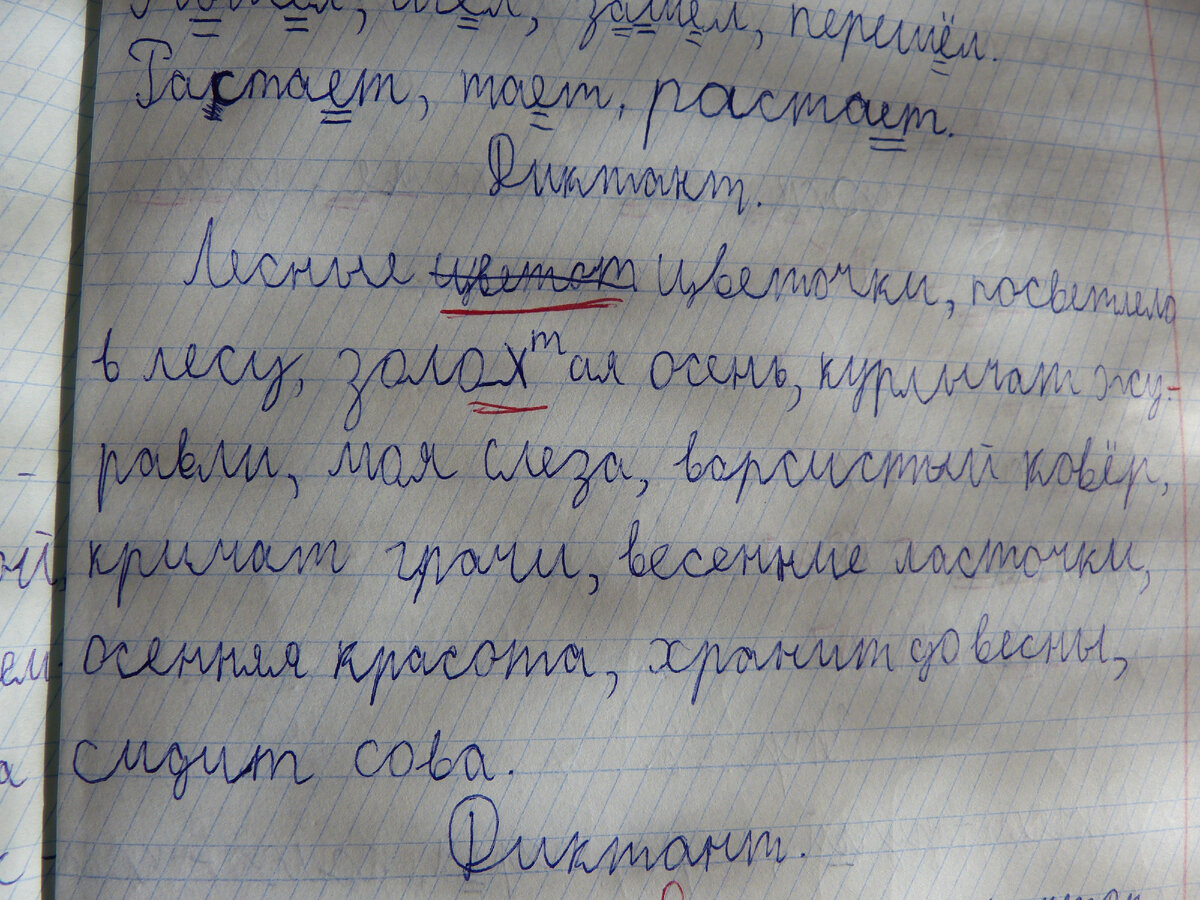 шёл, зашёл, перешёл.
Растает, тает, растает.
Диктант.
Лесные цветот цветочки, посветлело
в лесу, золохтая осень, курлычат жу-
равли, моя слеза, ворсистый ковёр,
кричат грачи, весенние ласточки,
осенняя красота, хранит до весны,
сидит сова.
Диктант.